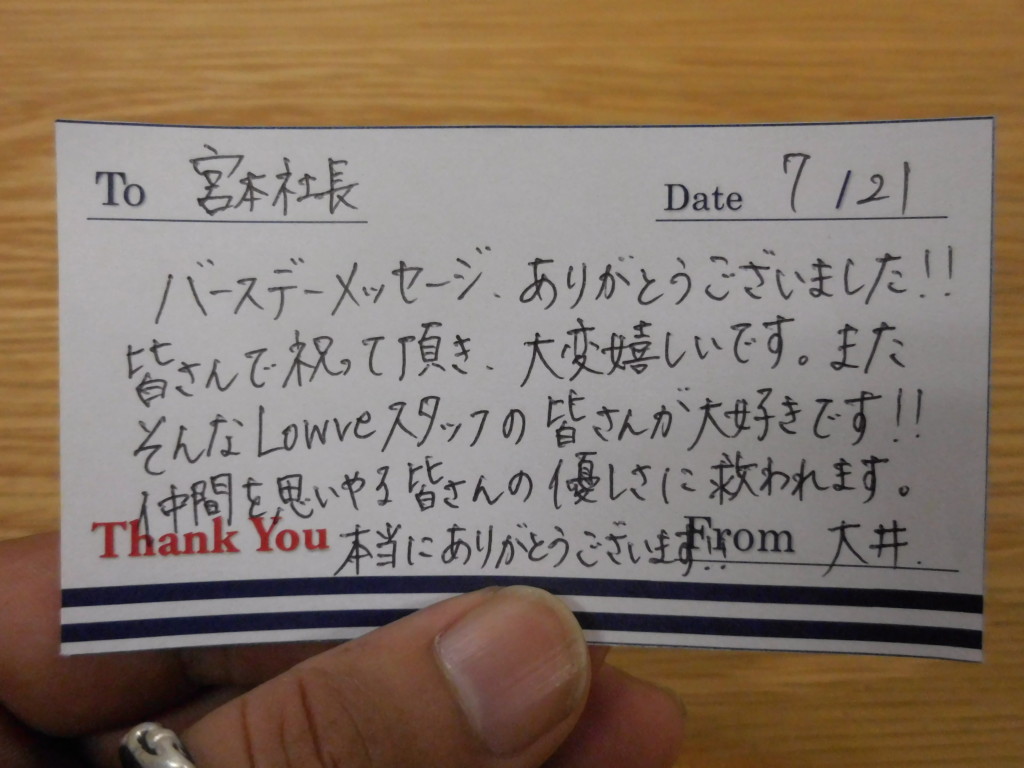 To 宮本社長 Date 7/21
バースデーメッセージ、ありがとうございました!!
皆さんで祝って頂き、大変嬉しいです。また
そんなLowveスタッフの皆さんが大好きです!!
仲間を思いやる皆さんの優しさに救われます。
本当にありがとうございます!!
Thank You From 大井.